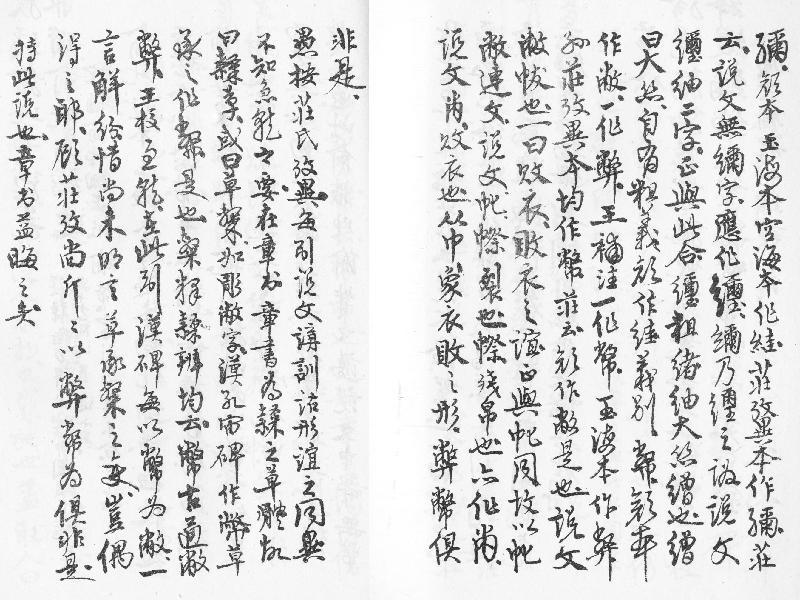 彌、顏本玉海本空海本作絓、莊攷異本作彌、莊
云、說文無彌字、應作纏、彌乃纏之譌、說文
纏紬二字、正與此合、纏粗緒紬大絲繒也、繒
曰大絲、自有粗義、顏作絓義別、幣、顏本
作敝、一作弊、王補注一作幣、玉海本作弊
孫莊攷異本均作幣、莊云、顏作敝是也、說文
敝帗也、一曰敗衣、敗衣之誼正與帊同、故以帊
敝連文、說文、帊幣裂也、幣殘帛也、㡀作㡀、
說文㡀、敗衣也、从巾、象衣敗之形、弊幣俱
非是、
愚按、莊氏攷異每引說文、詳訓詁形誼之同異
不知急就之要在章書、章書為隸之草體、故
曰隸草、或曰草隸、如彫敝字、漢孔宙碑作幣、草
承之作弊是也、隸釋隸辨均云、幣古通敝
弊、王校急就、直此引漢碑每以幣為敝、一
言解紛、惜尚未明言草承隸之變、豈偶
得之耶、顧莊攷尚斤斤以弊幣為俱非是、
持此說也、章書益晦之矣